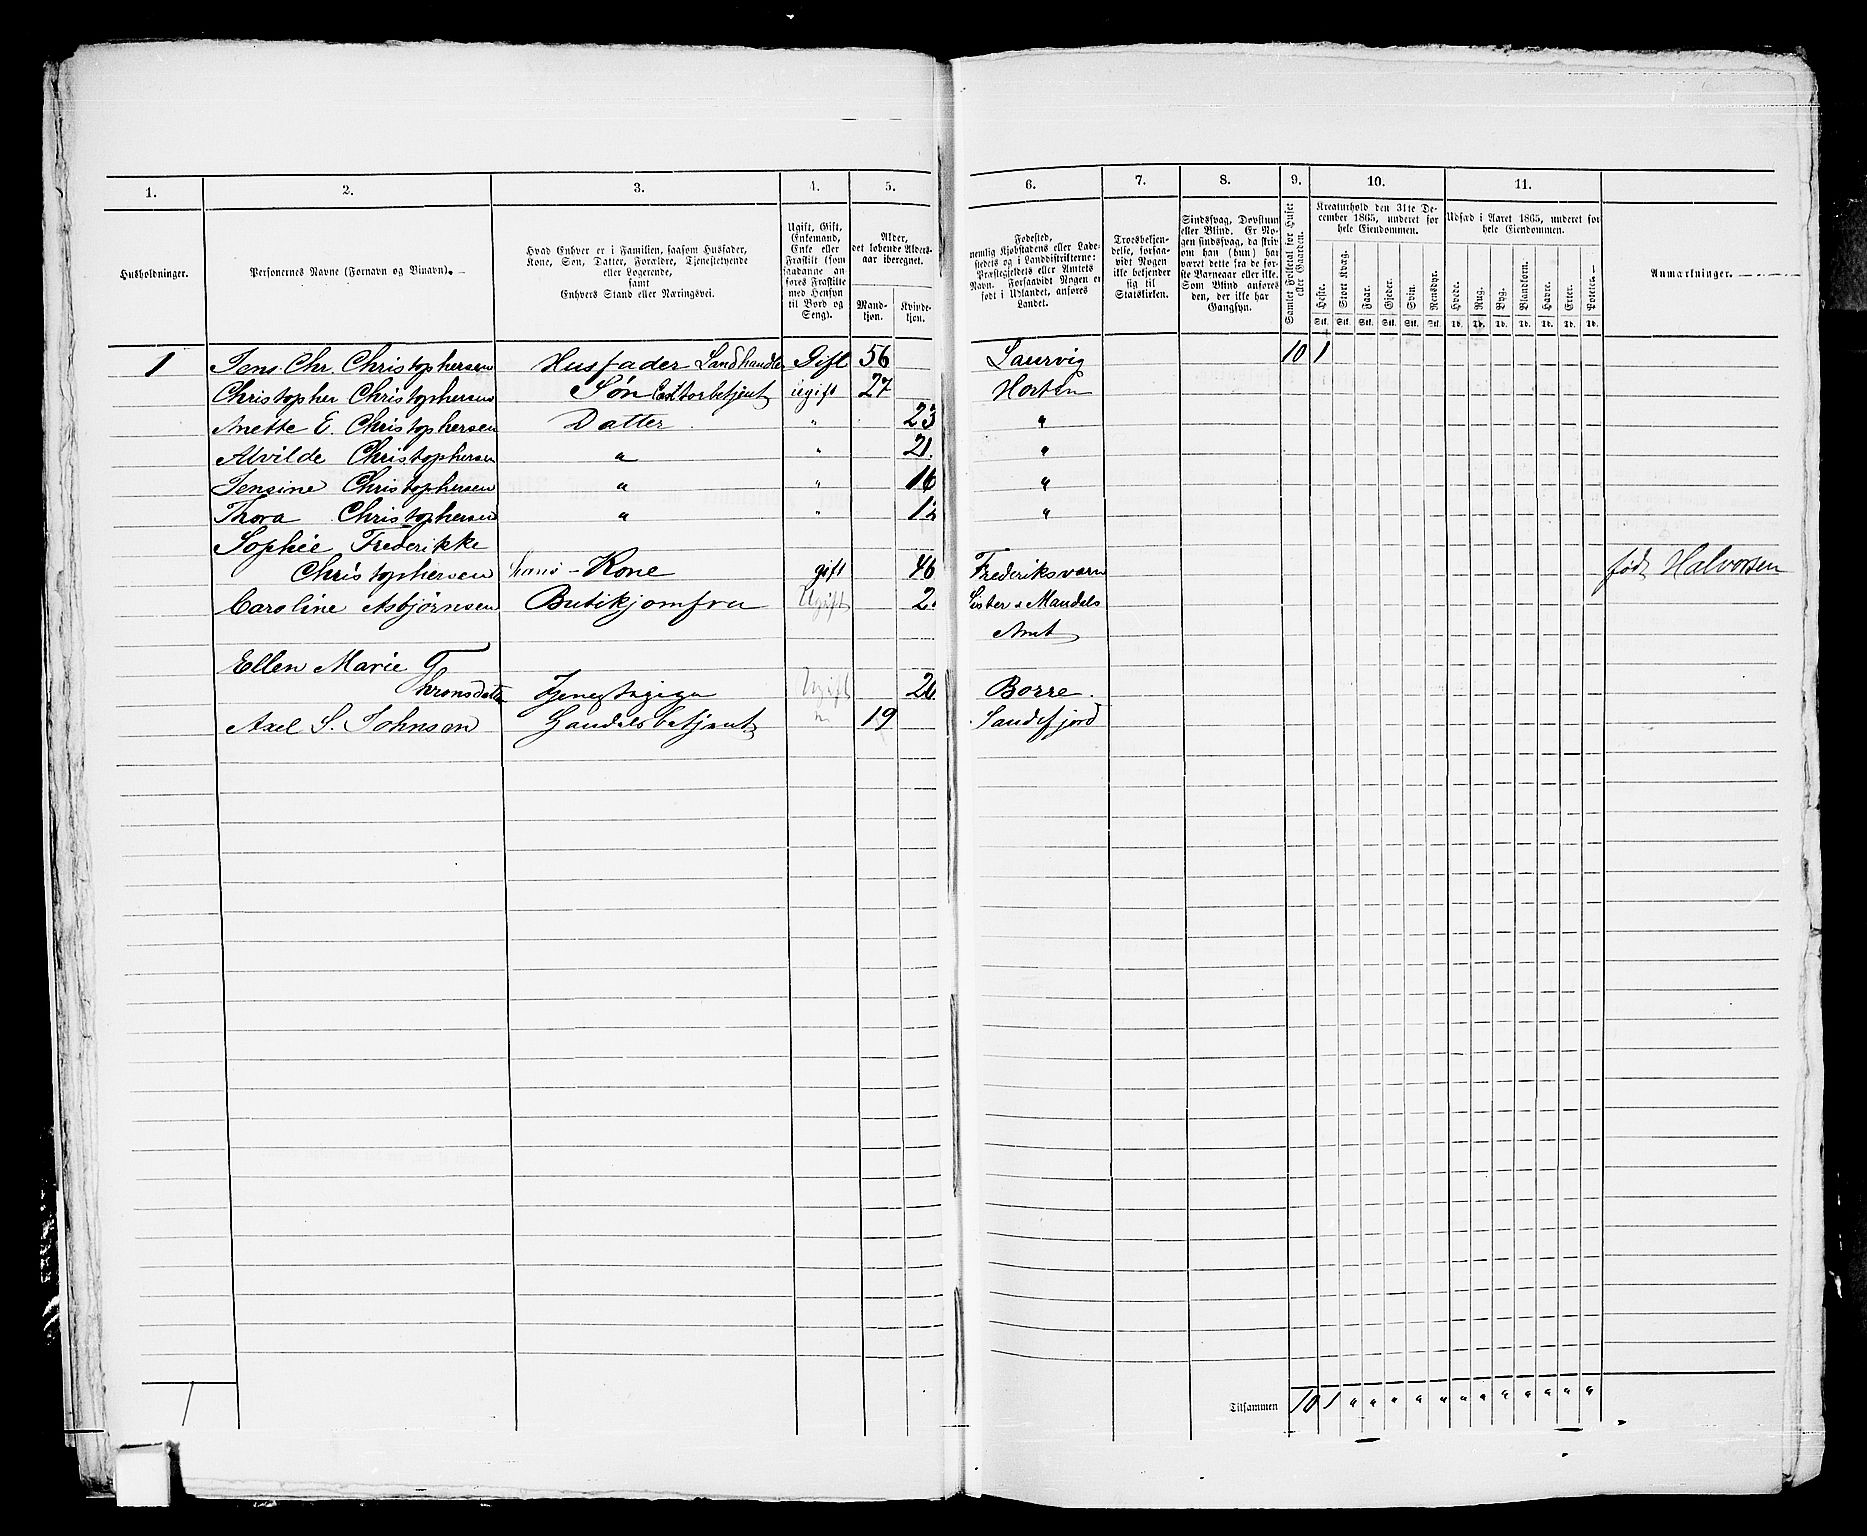 1. 2. 3. 4. 5. 6. 7. 8. 9. 10. 11.
Husholdninger.
Personernes Navne (Fornavn og Tilnavn).
Hvad Enhver er i Familien, saasom Husfader,
Kone, Søn, Datter, Forældre, Tjenestetyende
eller Logerende,
samt
Enhvers Stand eller Næringsvei.
Ugift, Gift,
Enkemand,
Enke eller
Fraskilt (som
saadanne anføres Fraskilte
med Hensyn
til Bord og
Seng).
Alder,
det løbende Aldersaar iberegnet.
Mandkjøn.
Kvindekjøn.
Fødested,
nemlig Kjøbstadens eller Ladestedets og i Landdistrikterne:
Præstegjeldets eller Amtets
Navn. Forsaavidt Nogen er
født i Udlandet, anføres
Landet.
Troesbekjendelse, forsaavidt Nogen
ikke bekjender
sig til
Statskirken.
Sindssvag, Døvstum
eller Blind. Er Nogen sindssvag, da skriv
om han (hun) har
været dette fra de første Barneaar eller ikke.
Som Blind anføres
den, der ikke har
Gangsyn.
Samlet Folketal for Huset
eller Gaarden.
Kreaturhold den 31te December 1865, underet for
hele Eiendommen.
Heste. Stort Kvæg. Faar. Gjeder. Svin. Rensdyr.
Stk. Stk. Stk. Stk. Stk. Stk.
Udsæd i Aaret 1865, underet for
hele Eiendommen.
Hvede. Rug. Byg. Blandkorn. Havre. Erter. Poteter.
Td. Td. Td. Td. Td. Td. Td.
Anmærkninger.
1 Jens Chr. Christophersen Husfader Landhandler Gift 56 Laurvig 10 1
Christopher Christophersen Søn ugift 27 Horten
Anette E. Christophersen Datter " 23 "
Alvilde Christophersen " " 21 "
Jensine Christophersen " " 16 "
Thora Christophersen " " 12 "
Sophie Frederikke
Christophersen hans - Kone gift 46 Frederiksværn født Halvorsen
Caroline Asbjørnsen Butikjomfru Ugift Lister & Mandals
Amt
Ellen Marie
Thronsdatter Tjenestepige Ugift 26 Borre.
Axel S. Johnson Handelsbetjent " 19 Sandefjord
1
Tilsammen 10 1 " " " " " " " " " " " "